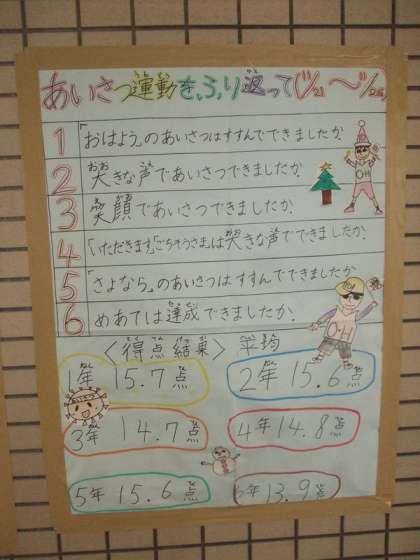 あいさつ運動をふり返って(11/21〜11/25)
1 「おはよう」のあいさつはすすんでできましたか。
2 大きな声であいさつできましたか。
3 笑顔であいさつできましたか。
4 「いただきます」「ごちそうさま」は大きな声でできましたか。
5 「さよなら」のあいさつはすすんでできましたか
6 めあては達成できましたか。
〈得点結果〉 平均
1年 15.7点
2年 15.6点
3年 14.7点
4年 14.8点
5年 15.6点
6年 13.9点
OH
OH